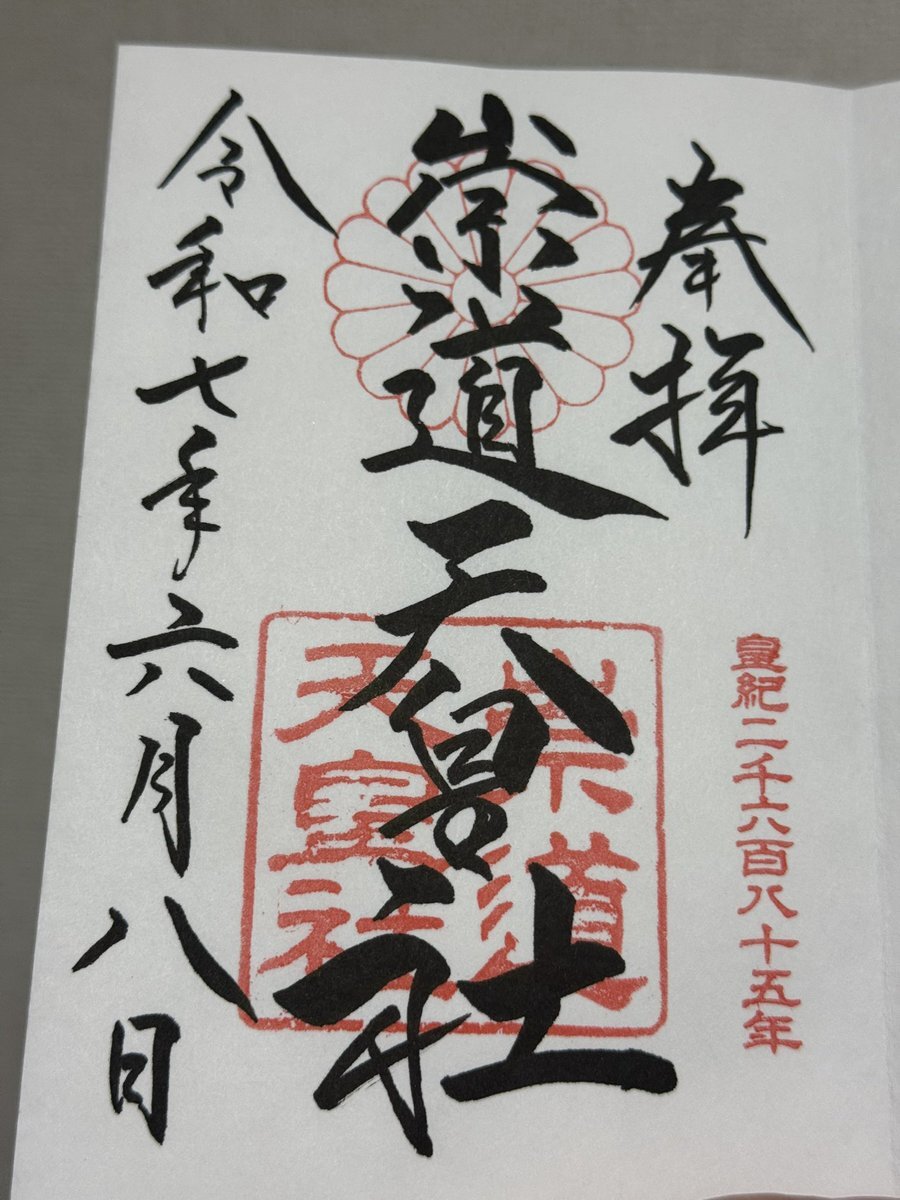 奉拝
皇紀二千六百八十五年
崇道天皇社
崇道
天皇社
令和七年六月八日